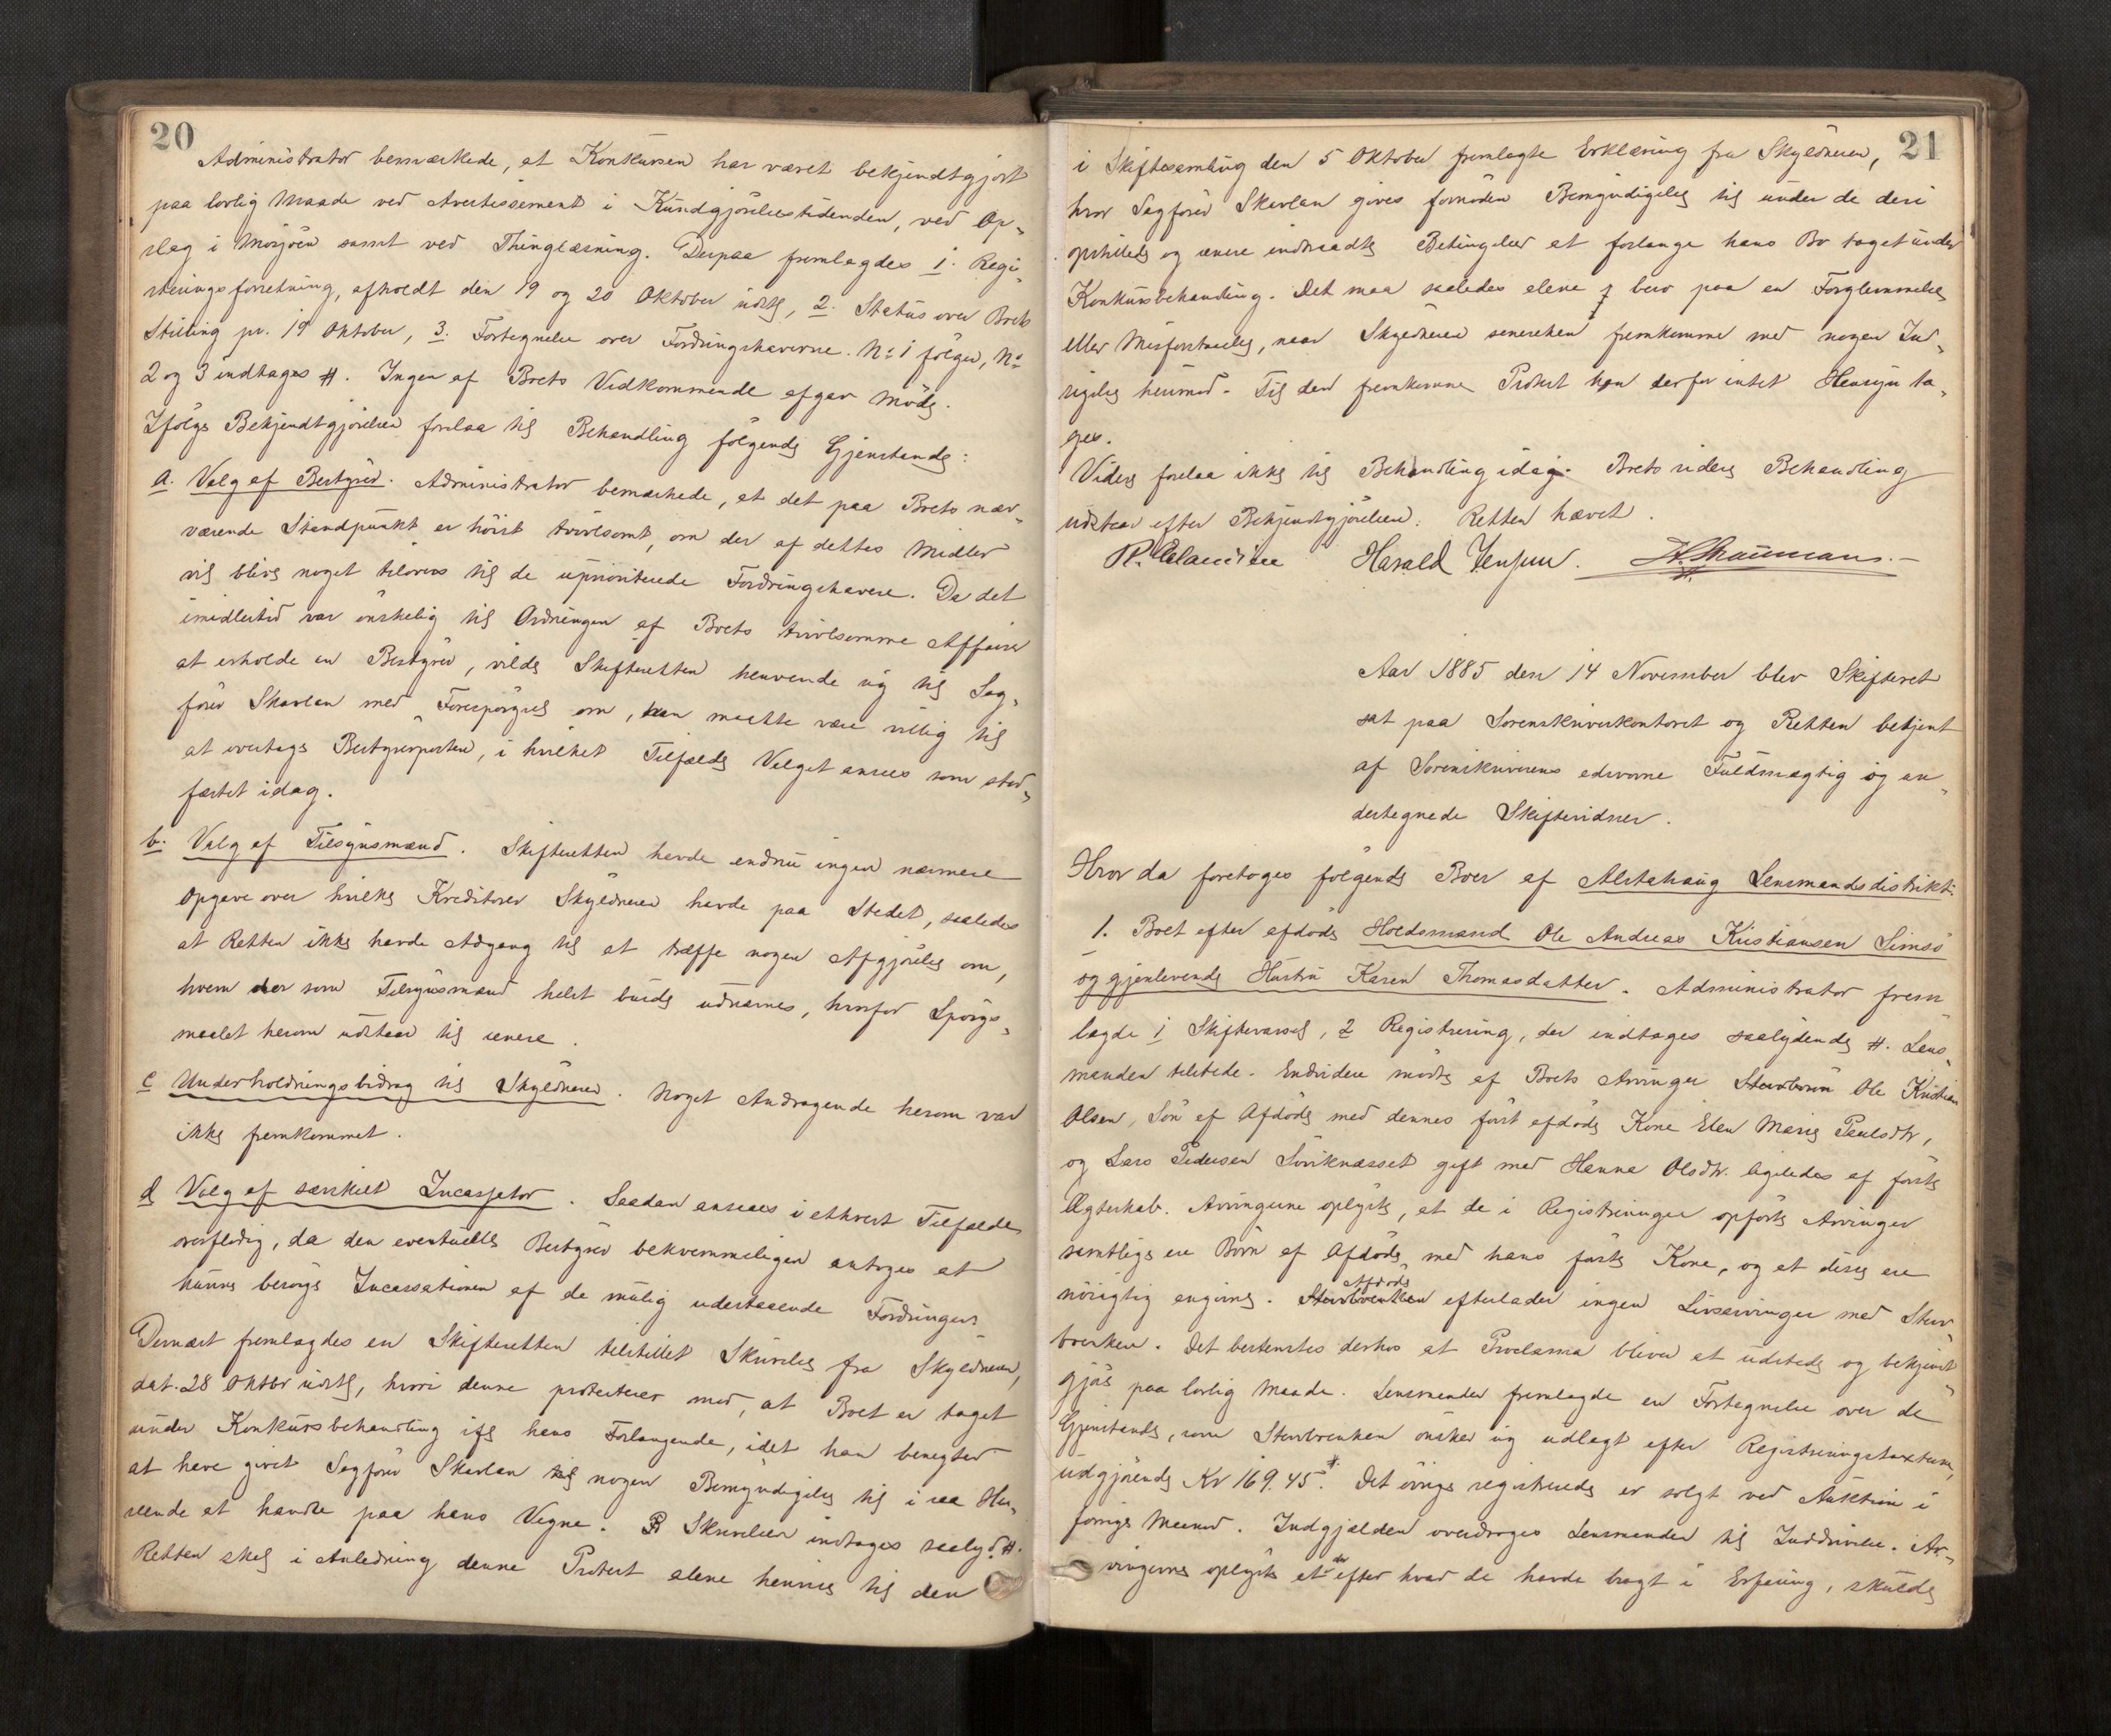 20
Administrator bemærkede, at Konkursen har været bekjendtgjort
paa lovlig Maade ved Avertissement i Kundgjørelsestidenden, ved Op-
slag i Mosjøen samt ved Thinglæsning. Derpaa fremlagdes 1. Regi-
streringsforretning, afholdt den 19 og 20 Oktober udstg, 2. Status over Boets
Stilling pr. 19 Oktober, 3. Fortegnelse over Fordringshaverne. No 1 følger, No
2 og 3 indtages #. Ingen af Boets Vedkommende afgav Møde.
Ifølge Bekjendtgjørelsen forelaa til Behandling følgende Gjenstande:
a. Valg af Bestyrer. Administrator bemærkede, at det paa Boets nær-
værende Standpunkt er høist tvivlsomt, om der af dettes Midler
vil blive noget tilovers til de uprioriterede Fordringshavere. Da det
imidlertid var ønskelig til Ordningen af Boets tvivlsomme Affairer
at erholde en Bestyrer, vilde Skifteretten henvende sig til Sag-
fører Skavlan med Forespørgsel om, han maatte være villig til
at overtage Bestyrerposten, i hvilket Tilfælde Valget ansees som stad-
fæstet idag.
b. Valg af Tilsynsmænd. Skifteretten havde endnu ingen nærmere
Opgave over hvilke Kreditorer Skyldneren havde paa Stedet, saaledes
at Retten ikke havde Adgang til at træffe nogen Afgjørelse om,
hvem der som Tilsynsmænd helst burde udnævnes, hvorfor Spørgs-
maalet herom udstaar til senere.
c Underholdningsbidrag til Skyldneren. Noget Andragende herom var
ikke fremkommet.
d Valg af særskilt Incassator. Saadan ansees i ethvert Tilfælde
overflødig, da den eventuelle Bestyrer bekvemmeligen antoges at
kunne besørge Incassationen af de mulig udestaaende Fordringer.
Dernæst fremlagdes en Skifteretten tilstillet Skrivelse fra Skyldneren,
dat. 28 Oktbr udstg, hvori denne protesterer mod, at Boet er taget
under Konkursbehandling ifg hans Forlangende, idet han benegter
at have givet Sagfører Skavlan nogen Bemyndigelse til i saa Hen-
seende at handle paa hans Vegne. Skrivelsen indtages saalyd. #.
Retten skal i Anledning denne Protest alene henvise til den
21
i Skiftesamling den 5 Oktober fremlagte Erklæring fra Skyldneren,
hvor Sagfører Skavlan gives fornøden Bemyndigelse til under de deri
opstillede og senere indtraadte Betingelser at forlange hans Bo taget under
Konkursbehandling. Det maa saaledes alene bero paa en Forglemmelse
eller Misforstaaelse, naar Skyldneren senerehen fremkommer med nogen Ind-
sigelse herimod. Til den fremkomne Protest kan derfor intet Hensyn ta-
ges.
Videre forelaa ikke til Behandling idag. Boets videre Behandling
udstaar efter Bekjendtgjørelsen. Retten hævet.
Harald Jensen.
Aar 1885 den 14 November blev Skifteret
sat paa Sorenskriverkontoret og Retten betjent
af Sorenskriverens edsvorne Fuldmægtig og un-
dertegnede Skiftevidner.
Hvor da foretoges følgende Boer af Alstahaug Lensmandsdistrikt:
1. Boet efter afdøde Holdsmand Ole Andreas Kristiansen Simsø
og gjenlevende Hustru Karen Thomasdatter. Administrator frem
lagde 1 Skiftevarsel, 2 Registrering, der indtages saalydende #. Lens-
manden tilstede. Endvidere mødte af Boets Arvinger Ole Kristian
Olsen, Søn af Afdøde med dennes først afdøde Kone Elen Marie Paulsdtr,
og Lars Pedersen gift med Hanna Olsdtr. ligeledes af første
Ægteskab. Arvingerne oplyste, at de i Registreringen opførte Arvinger
samtlige ere Børn af Afdøde med hans første Kone, og at disse ere
nøiagtig angivne. Afdøde efterlader ingen Livsarvinger med Sterv-
boenken. Det bestemtes derhos at Proclama bliver at udstede og bekjendt-
gjøs paa lovlig Maade. Lensmanden fremlagde en Fortegnelse over de
Gjenstande, som Stervboenken ønsker sig udlagt efter Registreringstaxten,
udgjørende Kr 169.45. # Det øvrige registrerede er solgt ved Auktion i
forrige Maaned. Indgjælden overdroges Lensmanden til Inddrivelse. Ar-
vingerne oplyste at der efter hvad de havde bragt i Erfaring, skulde